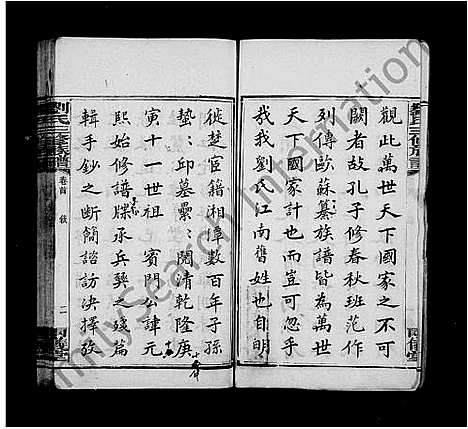 觀此萬世天下國家之不可
闕者故孔子修春秋班范作
列傳歐蘇纂族譜皆為萬世
天下國家計也而豈可忽乎
哉我劉氏江南舊姓也自明
徙楚宦籍湘潭數百年子孫
蟄蟄邱墓纍纍閱清乾隆庚
寅十一世祖 賓門公諱元
熙始修譜牒承兵燹之殘篇
輯手鈔之斷簡諮訪決擇攷
劉氏三修族譜
卷首
二
FamilySearch International